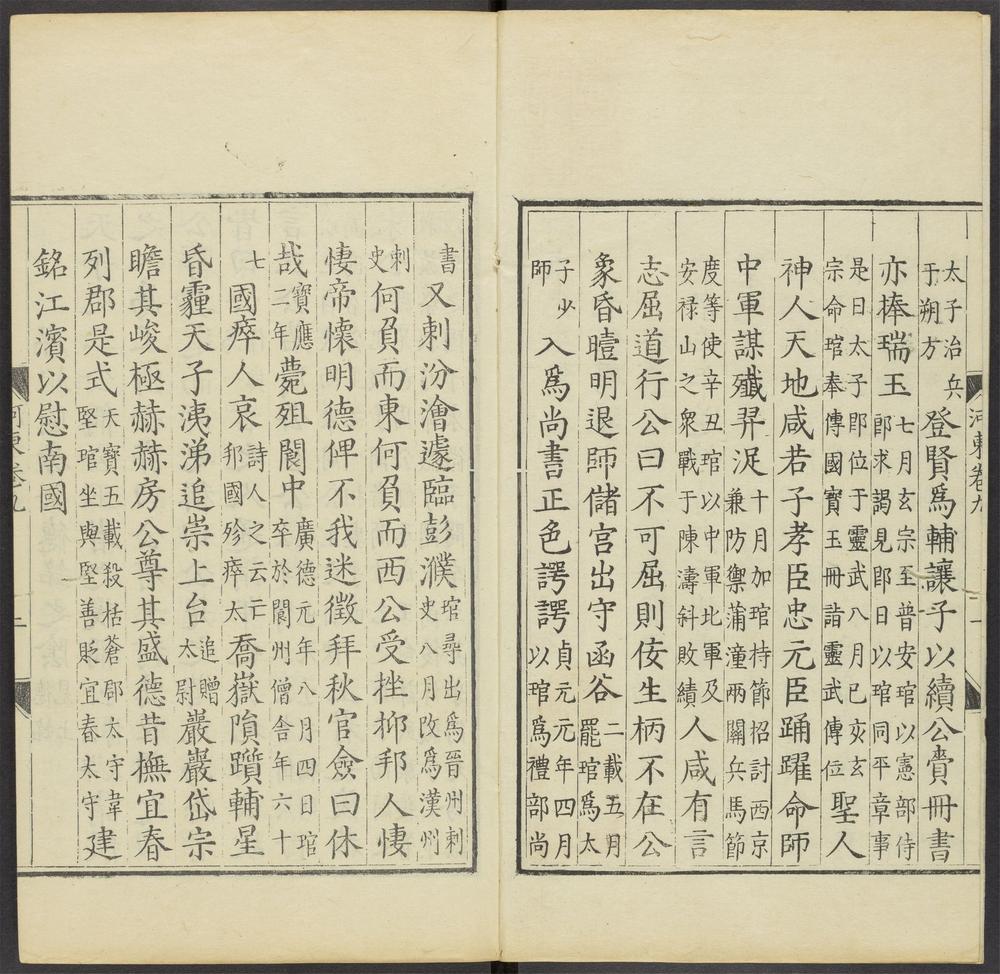 河東卷九
二
太子治兵于朔方登賢爲輔讓子以續公賫冊書
亦捧瑞玉七月玄宗至普安琯以憲部侍郎求謁見即日以琯同平章事
是日太子即位于靈武八月己亥玄宗命琯奉傳國寶玉冊詣靈武傳位聖人
神人天地咸若子孝臣忠元臣踊躍命師
中軍謀殱羿浞十月加琯持節招討西京兼防禦蒲潼兩關兵馬節
度等使辛丑琯以中軍北軍及安禄山之衆戰于陳濤斜敗績人咸有言
志屈道行公曰不可屈則佞生柄不在公
象昏曀明退師儲宮出守函谷二載五月罷琯爲太
子少師入爲尚書正色諤諤貞元元年四月以琯爲禮部尚
書又刺汾澮遽臨彭濮琯尋出爲晉州刺史八月改爲漢州
刺史何負而東何負而西公受挫抑邦人悽
悽帝懷明德俾不我迷徵拜秋官僉曰休
哉寶應二年薨殂閬中廣德元年八月四日琯卒於閬州僧舍年六十
七國瘁人哀詩人之云亡邦國殄瘁太喬嶽隕躓輔星
昏霾天子洟涕追崇上台追贈太尉巖巖岱宗
瞻其峻極赫赫房公尊其盛德昔撫宜春
列郡是式天寶五載殺栝蒼郡太守韋堅琯坐與堅善貶宜春太守建
銘江濱以慰南國
河東卷九
二